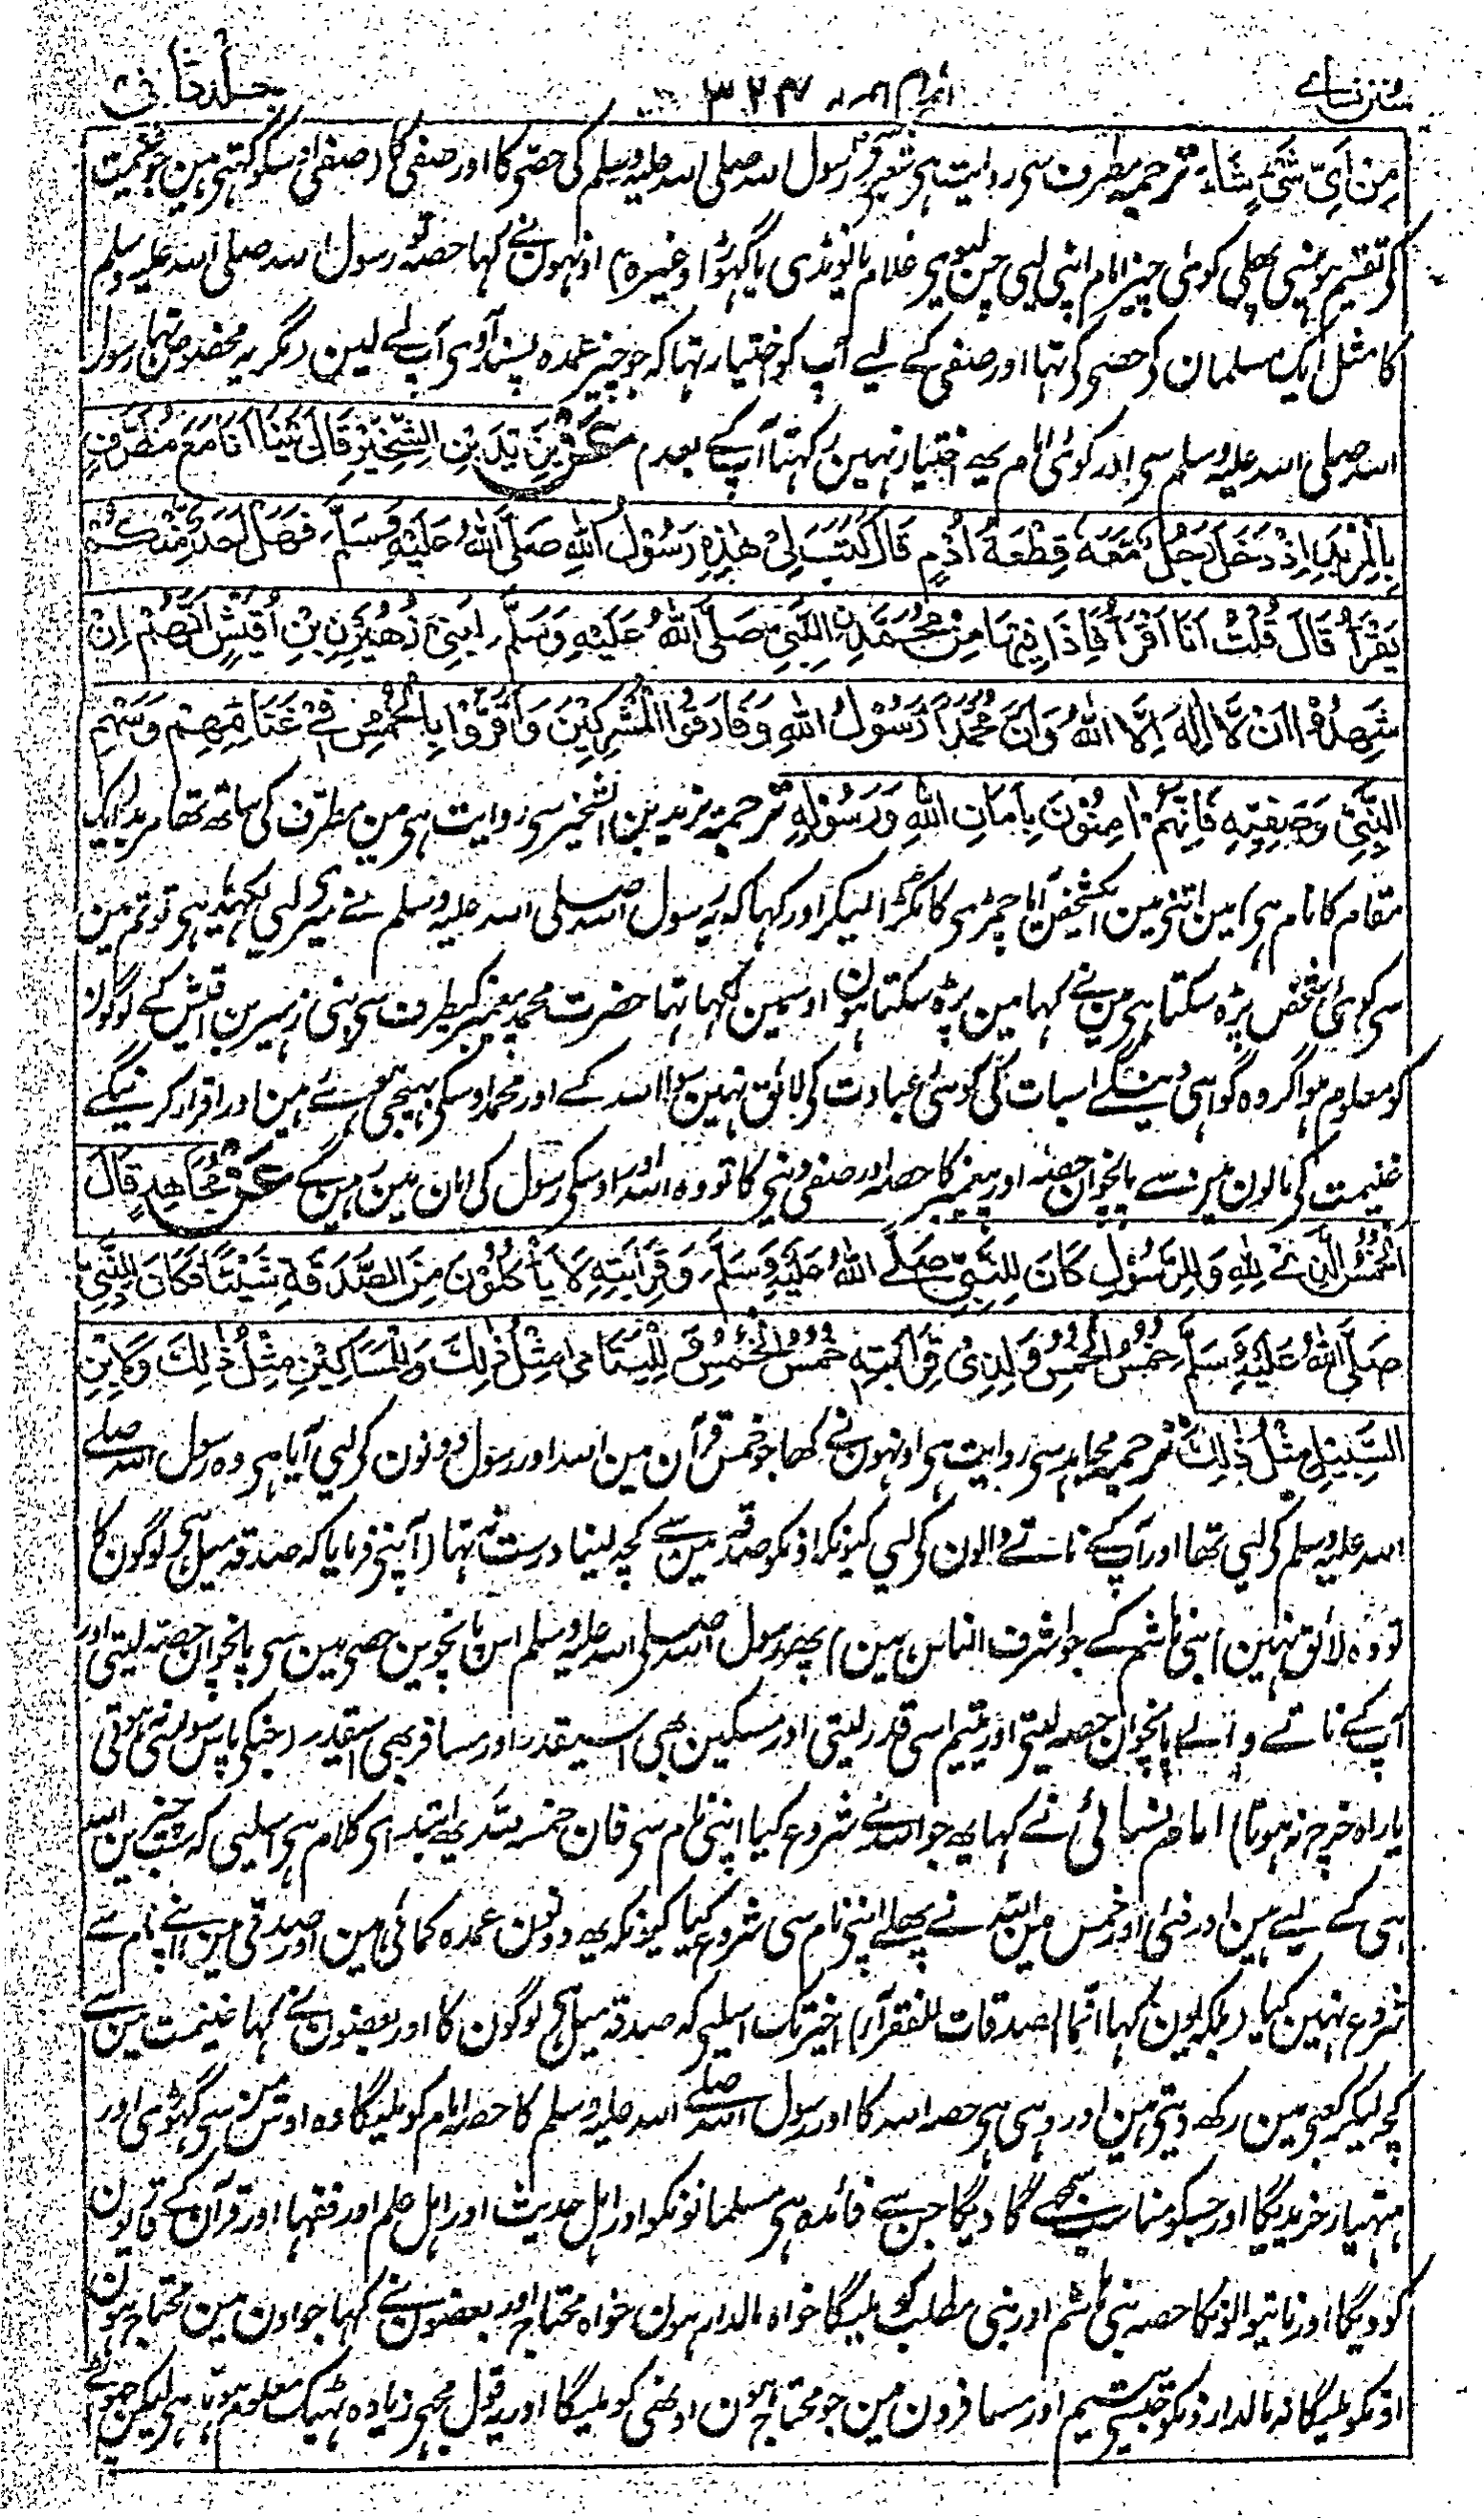 سنن نسائے ۳۲۴ جلد ثانی
مِنْ اَیِّ شَیْءٍ شَاءَ ترجمہ مطرف سی روایت ہی شعبی سے رسول اللہ صلی اللہ علیہ وسلم کی حصّی کا اور صفی کا (صفی اوسکو کہتی ہین جو غنیمت
کی تقسیم ہونیسی پھلی کوئی چیز امام اپنی لیی چن لیوی غلام یا لونڈی یا گہوڑا وغیرہ) اونہون نے کہا حصّہ تو رسول اللہ صلی اللہ علیہ وسلم
کا مثل ایک مسلمان کی حصی کی تہا اور صفی کے لیے آپ کو اختیار تہا کہ جو چیز عمدہ پسند آوی آپ لے لین (مگر یہ مخصوص تہا رسول
اللہ صلی اللہ علیہ وسلم سی اور کوئی امام یہ اختیار نہین رکہتا آپ کے بعد م عَنْ یَزِیْدَ بْنِ الشِّخِّیْرِ قَالَ بَیْنَا اَنَا مَعَ مُطَرِّفٍ
بِالْمِرْبَدِ اِذْ دَخَلَ رَجُلٌ مَّعَهٗ قِطْعَةُ اُدُمٍ قَالَ كَتَبَ لِیْ هٰذِهٖ رَسُوْلُ اللّٰهِ صَلَّی اللّٰهُ عَلَیْهِ وَسَلَّمَ فَهَلْ اَحَدٌ مِّنْكُمْ
یَقْرَأُ قَالَ قُلْتُ اَنَا اَقْرَأُ فَاِذَا فِیْهَا مِنْ مُّحَمَّدِنِ النَّبِیِّ صَلَّی اللّٰهُ عَلَیْهِ وَسَلَّمَ لِبَنِیْ زُهَیْرِ بْنِ اُقَیْشٍ اَنَّهُمْ اِنْ
شَهِدُوْا اَنْ لَّا اِلٰهَ اِلَّا اللّٰهُ وَاَنَّ مُحَمَّدًا رَّسُوْلُ اللّٰهِ وَفَارَقُوا الْمُشْرِكِیْنَ وَاَقَرُّوْا بِالْخُمُسِ فِیْ غَنَائِمِهِمْ وَسَهْمِ
النَّبِیِّ وَصَفِیِّهٖ فَاِنَّهُمْ اٰمِنُوْنَ بِاَمَانِ اللّٰهِ وَرَسُوْلِهٖ ترجمہ یزید بن الشخیر سی روایت ہی مین مطرّف کی ساتھ تھا مربد (ایک
مقام کا نام ہی) مین اتنی مین ایک شخص آیا چمڑی کا ٹکڑا لیکر اور کہا کہ یہ رسول اللہ صلی اللہ علیہ وسلم نے میری لیی لکھدیا ہی تو تم مین
سی کوئی شخص پڑہ سکتا ہی مین نے کہا مین پڑہ سکتا ہون اوسمین لکہا تہا حضرت محمد پیغمبر کیطرف سی بنی زہیر بن اقیش کے لوگون
کو معلوم ہو اگر وہ گواہی دینگے اسبات کی کوئی عبادت کی لائق نہین سوا اللہ کے اور محمد اوسکی بہیجی ہوئے ہین اور اقرار کرینگے
غنیمت کی مالون مین سے پانچوان حصّہ اور پیغمبر کا حصہ اور صفی دینی کا تو وہ اللہ اور اوسکی رسول کی امان مین رہین گے عَنْ مُجَاهِدٍ قَالَ
الْخُمُسُ الَّذِیْ لِلّٰهِ وَلِلرَّسُوْلِ كَانَ لِلنَّبِیِّ صَلَّی اللّٰهُ عَلَیْهِ وَسَلَّمَ وَقَرَابَتِهٖ لَا یَأْكُلُوْنَ مِنَ الصَّدَقَةِ شَیْئًا فَكَانَ لِلنَّبِیِّ
صَلَّی اللّٰهُ عَلَیْهِ وَسَلَّمَ خُمُسُ الْخُمُسِ وَلِذِیْ قَرَابَتِهٖ خُمُسُ الْخُمُسِ وَلِلْیَتَامٰی مِثْلُ ذٰلِكَ وَلِلْمَسَاكِیْنِ مِثْلُ ذٰلِكَ وَلِابْنِ
السَّبِیْلِ مِثْلُ ذٰلِكَ ترجمہ مجاہد سی روایت ہی اونہون نے کھا جو خمس قرآن مین اللہ اور رسول دونون کی لیی آیا ہی وہ رسول اللہ صلے
اللہ علیہ وسلم کی لیی تھا اور آپ کے ناتے والون کی لیی کیونکہ اونکو صدقہ مین سے کچہ لینا درست نہ تہا (آپنی فرمایا کہ صدقہ میل ہی لوگون کا
تو وہ لائق نہین بنی ہاشم کے جو اشرف الناس ہین) پھر رسول اللہ صلی اللہ علیہ وسلم اس پانچوین حصی مین سی پانچوان حصّہ لیتی اور
آپ کے ناتے والے پانچوان حصہ لیتی اور یتیم اسی قدر لیتی اور مسکین بھی اسیقدر اور مسافر بھی اسیقدر (جنکی پاس سواری نہ ہوتی
یا راہ خرچ نہ ہوتا) امام نسائی نے کہا یہ جو اللہ نے شروع کیا اپنی نام سی فان للہ خمسہ یہ ابتدای کلام ہی اسلیی کہ سب چیزین اللہ
ہی کے لیے ہین اور فئی اور خمس مین اللہ نے پہلے اپنی نام سی شروع کیا کیونکہ یہ دونون عمدہ کمائی ہین اور صدقی مین اپنے نام سے
شروع نہین کیا (بلکہ یون کہا انما الصدقات للفقرآء) اخیر تک اسلیی کہ صدقہ میل ہی لوگون کا اور بعضون نے کہا غنیمت مین سے
کچہ لیکر کعبی مین رکھ دیتی ہین اور وہی ہی حصہ اللہ کا اور رسول اللہ صلے اللہ علیہ وسلم کا حصہ امام کو ملیگا وہ اوس مین سی گہوڑی اور
ہتہیار خریدیگا اور جسکو مناسب سمجھے گا دیگا جس سے فائدہ ہی مسلمانونکو اور اہل حدیث اور اہل علم اور فقہا اور قرآن کے قاریون
کو دیگا اور ناتیوالونکا حصہ بنی ہاشم اور بنی مطلب کو ملیگا خواہ مالدار ہون خواہ محتاج اور بعضون نے کہا جو اون مین محتاج ہون
اونکو ملیگا نہ مالدارونکو جیسی یتیم اور مسافرون مین جو محتاج ہون اونھی کو ملیگا اور یہ قول مجہی زیادہ ٹہیک معلوم ہوتا ہی لیکن چھوٹے